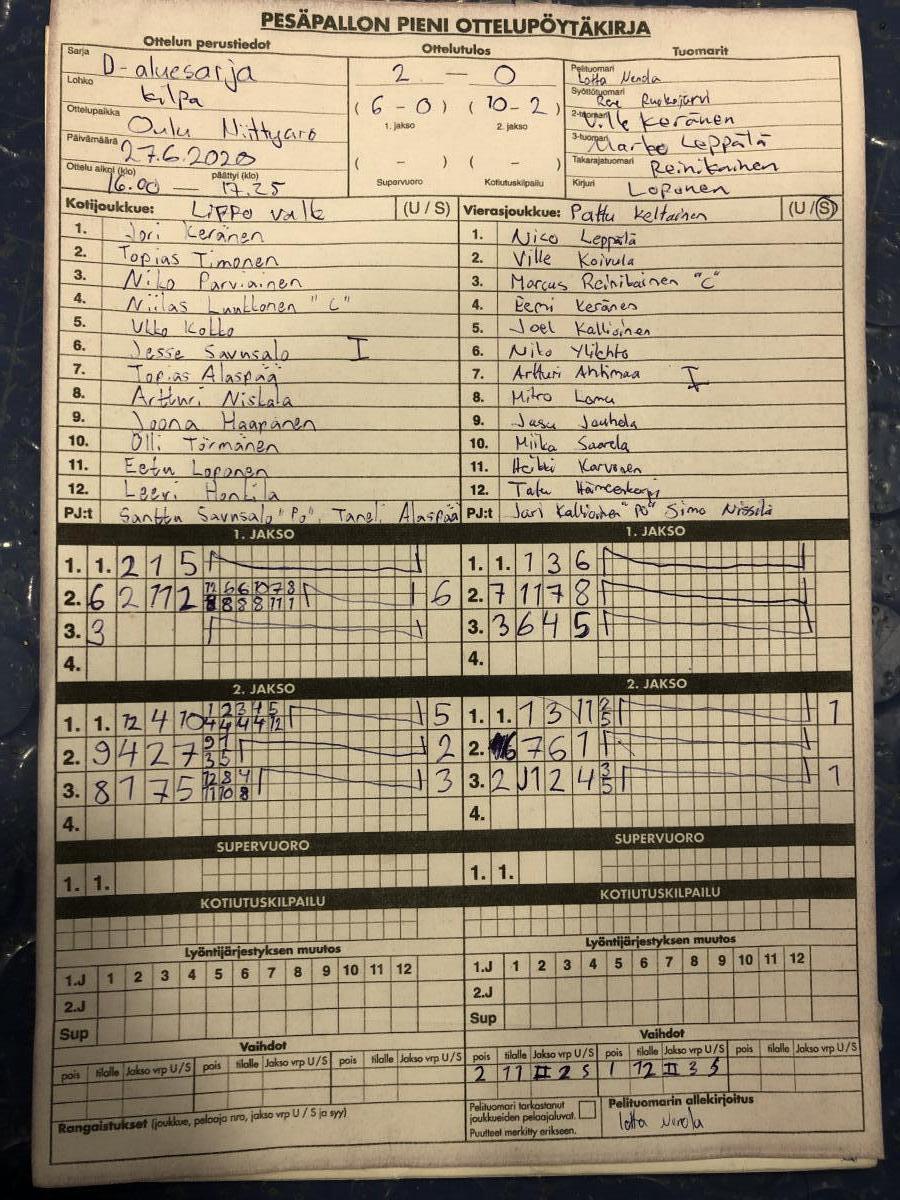 PESÄPALLON PIENI OTTELUPÖYTÄKIRJA
Ottelun perustiedot
Sarja D-aluesarja
Lohko kilpa
Ottelupaikka Oulu Niittyaro
Päivämäärä 27.6.2020
Ottelu alkoi (klo) 16.00 — päättyi (klo) 17.25
Ottelutulos
2 — 0
(6 - 0) (10 - 2)
1. jakso 2. jakso
( - ) ( - )
Supervuoro Kotiutuskilpailu
Tuomarit
Pelituomari Lotta
Syöttötuomari Ruokojärvi
2-tuomari Ville Keränen
3-tuomari Marko Leppälä
Takarajatuomari Reinikainen
Kirjuri Loponen
Kotijoukkue: Lippo valk (U / S)
1. Jori Keränen
2. Topias Timonen
3. Niko Parviainen
4. Niilas Luukkonen "C"
5. Ukko Kokko
6. Jesse Savusalo I
7. Topias Alaspää
8. Artturi Niskala
9. Joona Haapanen
10. Olli Törmänen
11. Eetu Loponen
12. Leevi Honkila
PJ:t Santtu Savusalo "Po", Taneli Alaspää
Vierasjoukkue: Pattu keltainen (U / S)
1. Nico Leppälä
2. Ville Koivula
3. Marcus Reinikainen "C"
4. Eemi Keränen
5. Joel Kallioinen
6. Niko Ylilehto
7. Artturi Ahtimaa I
8. Mitro Lamu
9. Jasu Jauhola
10. Miika Saarela
11. Heikki Karvonen
12. Tatu
PJ:t Jari Kallioinen "Po" Simo Nissilä
1. JAKSO
1. 1. 2 1 5
2. 6 2 11 2 6
3. 3
4.
1. JAKSO
1. 1. 1 3 6
2. 7 11 7 8
3. 3 6 4 5
4.
2. JAKSO
1. 1. 12 4 10 1 2 3 4 5 5
4 4 4 4 12
2. 9 4 2 7 9 1 2
3 5
3. 8 1 7 5 12 8 4 3
11 10 8
4.
2. JAKSO
1. 1. 1 3 11 2 1
5
2. 7 6 1
3. 2 12 4 3 1
5
4.
SUPERVUORO
1. 1.
SUPERVUORO
1. 1.
KOTIUTUSKILPAILU
KOTIUTUSKILPAILU
Lyöntijärjestyksen muutos
1.J 1 2 3 4 5 6 7 8 9 10 11 12
2.J
Sup
Lyöntijärjestyksen muutos
1.J 1 2 3 4 5 6 7 8 9 10 11 12
2.J
Sup
Vaihdot
pois tilalle Jakso vrp U/S pois tilalle Jakso vrp U/S pois tilalle Jakso vrp U/S
Vaihdot
pois tilalle Jakso vrp U/S pois tilalle Jakso vrp U/S pois tilalle Jakso vrp U/S
2 11 II 2 S 1 12 II 3 S
Rangaistukset (joukkue, pelaaja nro, jakso vrp U / S ja syy)
Pelituomari tarkastanut
joukkueiden pelaajaluvat.
Puutteet merkitty erikseen.
Pelituomarin allekirjoitus
Lotta